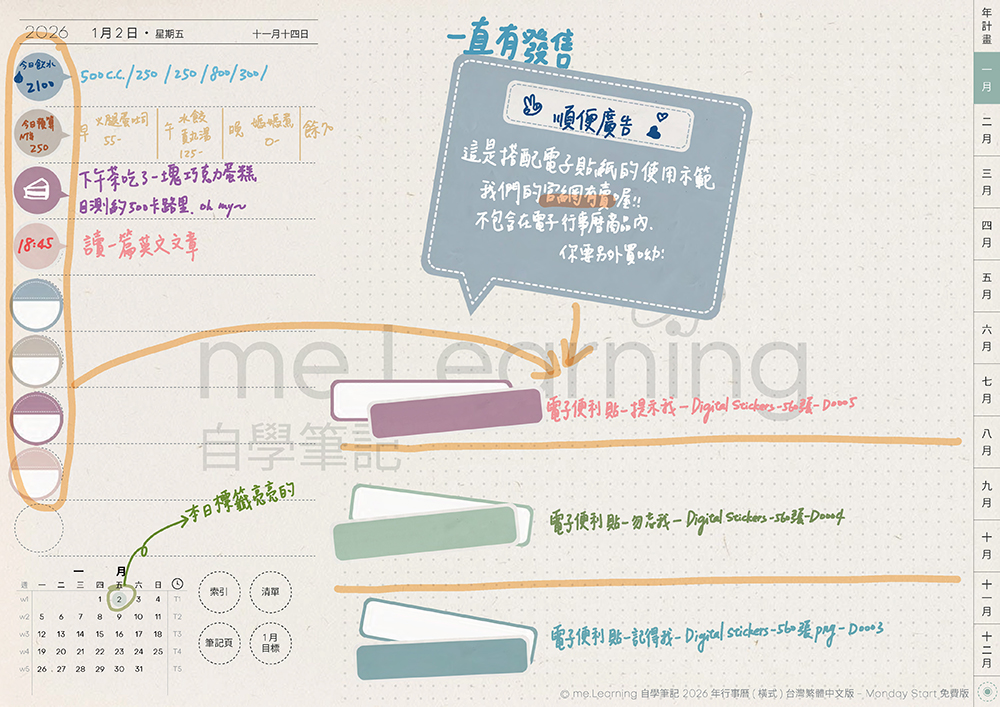 2026 1月2日・星期五 十一月十四日
今日飲水
2100
500c.c./250/250/800/300/
今日預算
NT$
250
早 火腿蛋吐司 55-
午 水餃 貢丸湯 125-
晚 媽媽煮 0-
餘70
下午茶吃了一塊巧克力蛋糕
目測約500卡路里. oh my~
18:45
讀一篇英文文章
本日標籤亮亮的
一月
週 一 二 三 四 五 六 日
w1 1 2 3 4 T1
w2 5 6 7 8 9 10 11 T2
w3 12 13 14 15 16 17 18 T3
w4 19 20 21 22 23 24 25 T4
w5 26 27 28 29 30 31 T5
索引
清單
筆記頁
1月
目標
一直有發售
順便廣告
這是搭配電子貼紙的使用示範
我們的官網有賣喔!!
不包含在電子行事曆商品內.
你要另外買呦!
me.Learning
自學筆記
電子便利貼-提示我-Digital Stickers-560張-D0005
電子便利貼-勿忘我-Digital Stickers-560張-D0004
電子便利貼-記得我-Digital Stickers-560張png-D0003
© me.Learning 自學筆記 2026 年行事曆 ( 橫式 ) 台灣繁體中文版 - Monday Start 免費版
年計畫
一月
二月
三月
四月
五月
六月
七月
八月
九月
十月
十一月
十二月